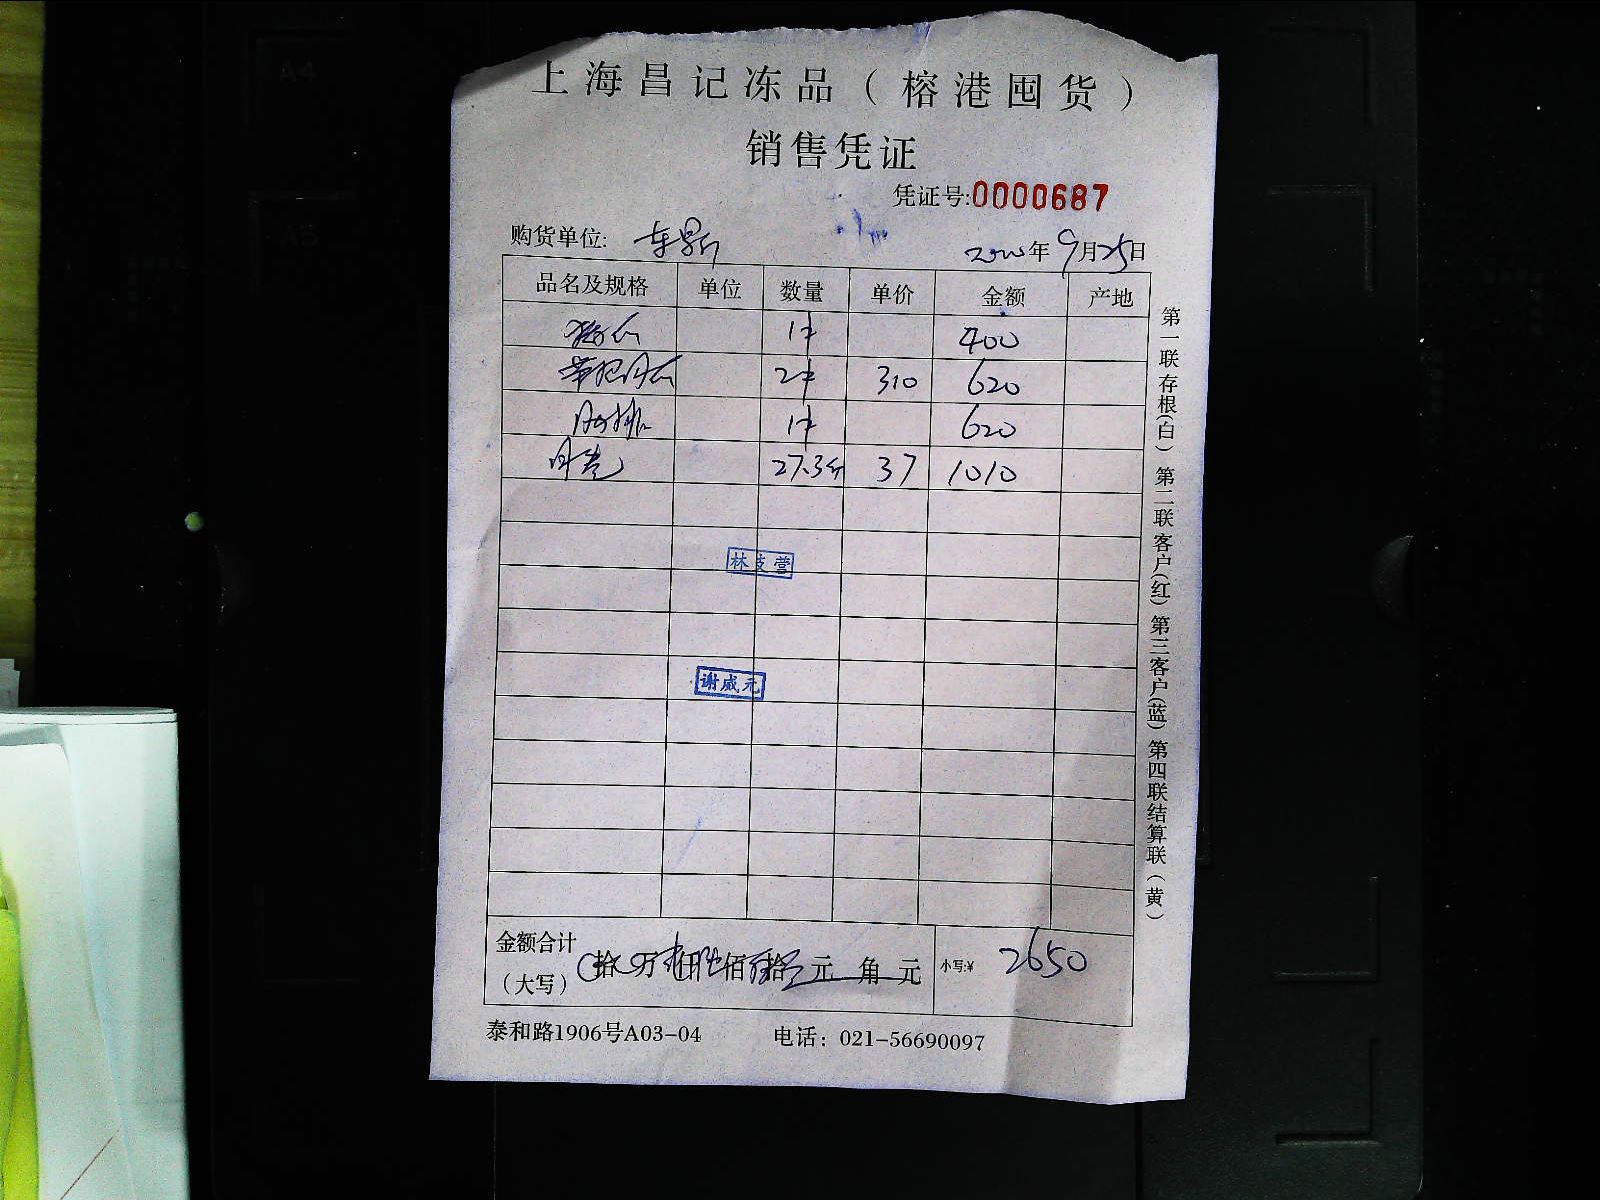 上海昌记冻品（榕港囤货）
销售凭证
凭证号:0000687
购货单位:
年9月25日
品名及规格 单位 数量 单价 金额 产地
1件 400
2件 310 620
1件 620
27.3斤 37 1010
林支营
谢威元
金额合计
（大写） 拾 万 仟 佰 拾 元 角 元 小写:¥ 2650
泰和路1906号A03-04 电话：021-56690097
第一联存根（白）第二联客户（红）第三客户（蓝）第四联结算联（黄）
A4
A5